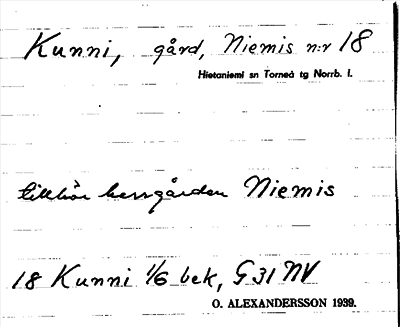 Kunni, gård, Niemis n:r 18
Hietaniemi sn Torneå tg Norrb. l.
tillhör herrgården Niemis
18 Kunni 1/6 bek, G 31 NV
O. ALEXANDERSSON 1939.